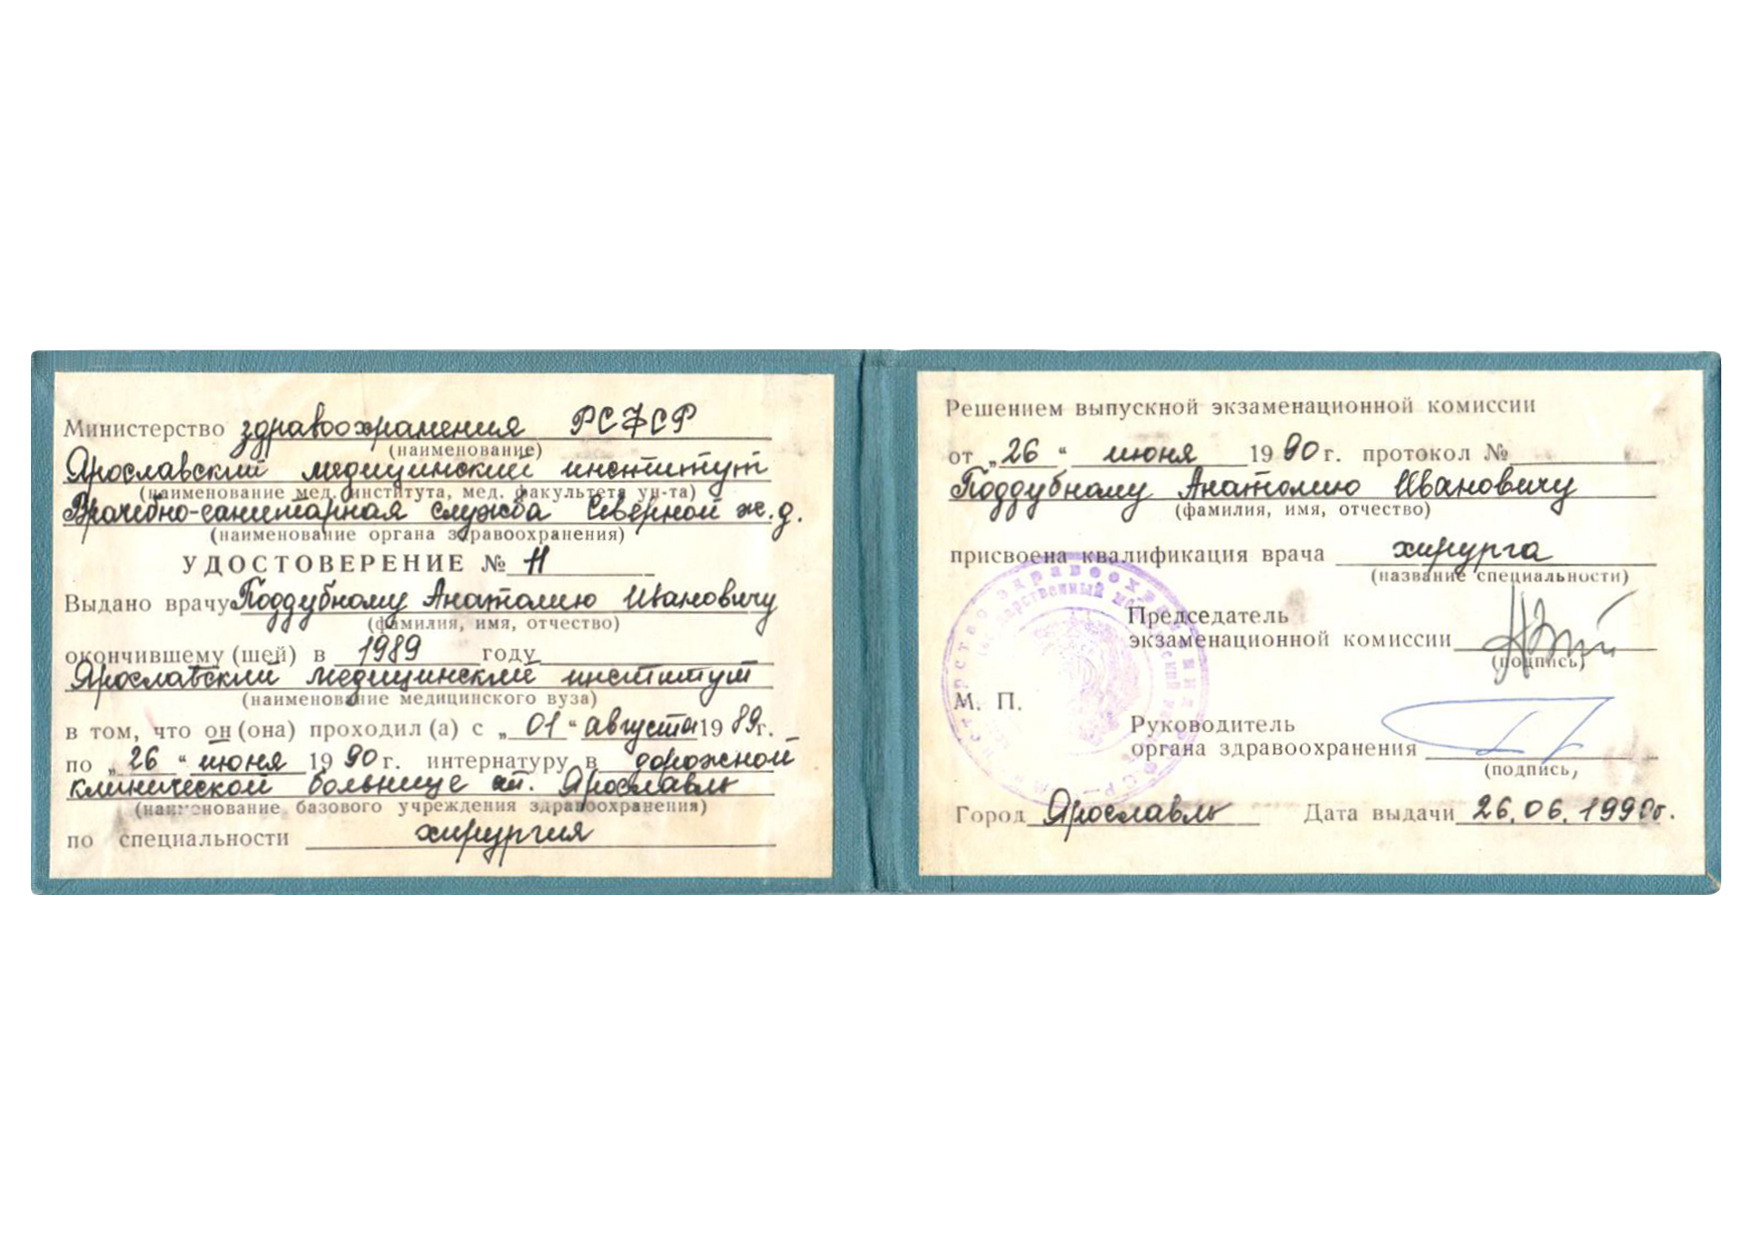 Министерство здравоохранения РСФСР
(наименование)
Ярославский медицинский институт
(наименование мед. института, мед. факультета ун-та)
Врачебно-санитарная служба Северной ж.д.
(наименование органа здравоохранения)
УДОСТОВЕРЕНИЕ № 11
Выдано врачу Поддубному Анатолию Ивановичу
(фамилия, имя, отчество)
окончившему (шей) в 1989 году
Ярославский медицинский институт
(наименование медицинского вуза)
в том, что он (она) проходил (а) с „01" августа 1989г.
по „26" июня 1990г. интернатуру в дорожной
клинической больнице ст. Ярославль
(наименование базового учреждения здравоохранения)
по специальности хирургия
Решением выпускной экзаменационной комиссии
от „26" июня 1990г. протокол №
Поддубному Анатолию Ивановичу
(фамилия, имя, отчество)
присвоена квалификация врача хирурга
(название специальности)
Председатель
экзаменационной комиссии
(подпись)
М. П.
Руководитель
органа здравоохранения
(подпись)
Город Ярославль Дата выдачи 26.06.1990г.